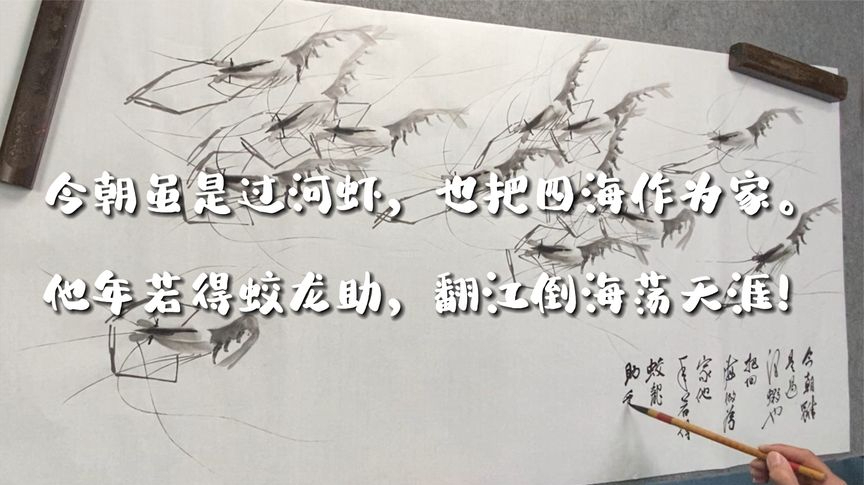 今朝虽是过河虾，也把四海作为家。
他年若得蛟龙助，翻江倒海荡天涯！
今朝雖
是過
河蝦也
把四
海做為
家他
年若得
蛟龍
助